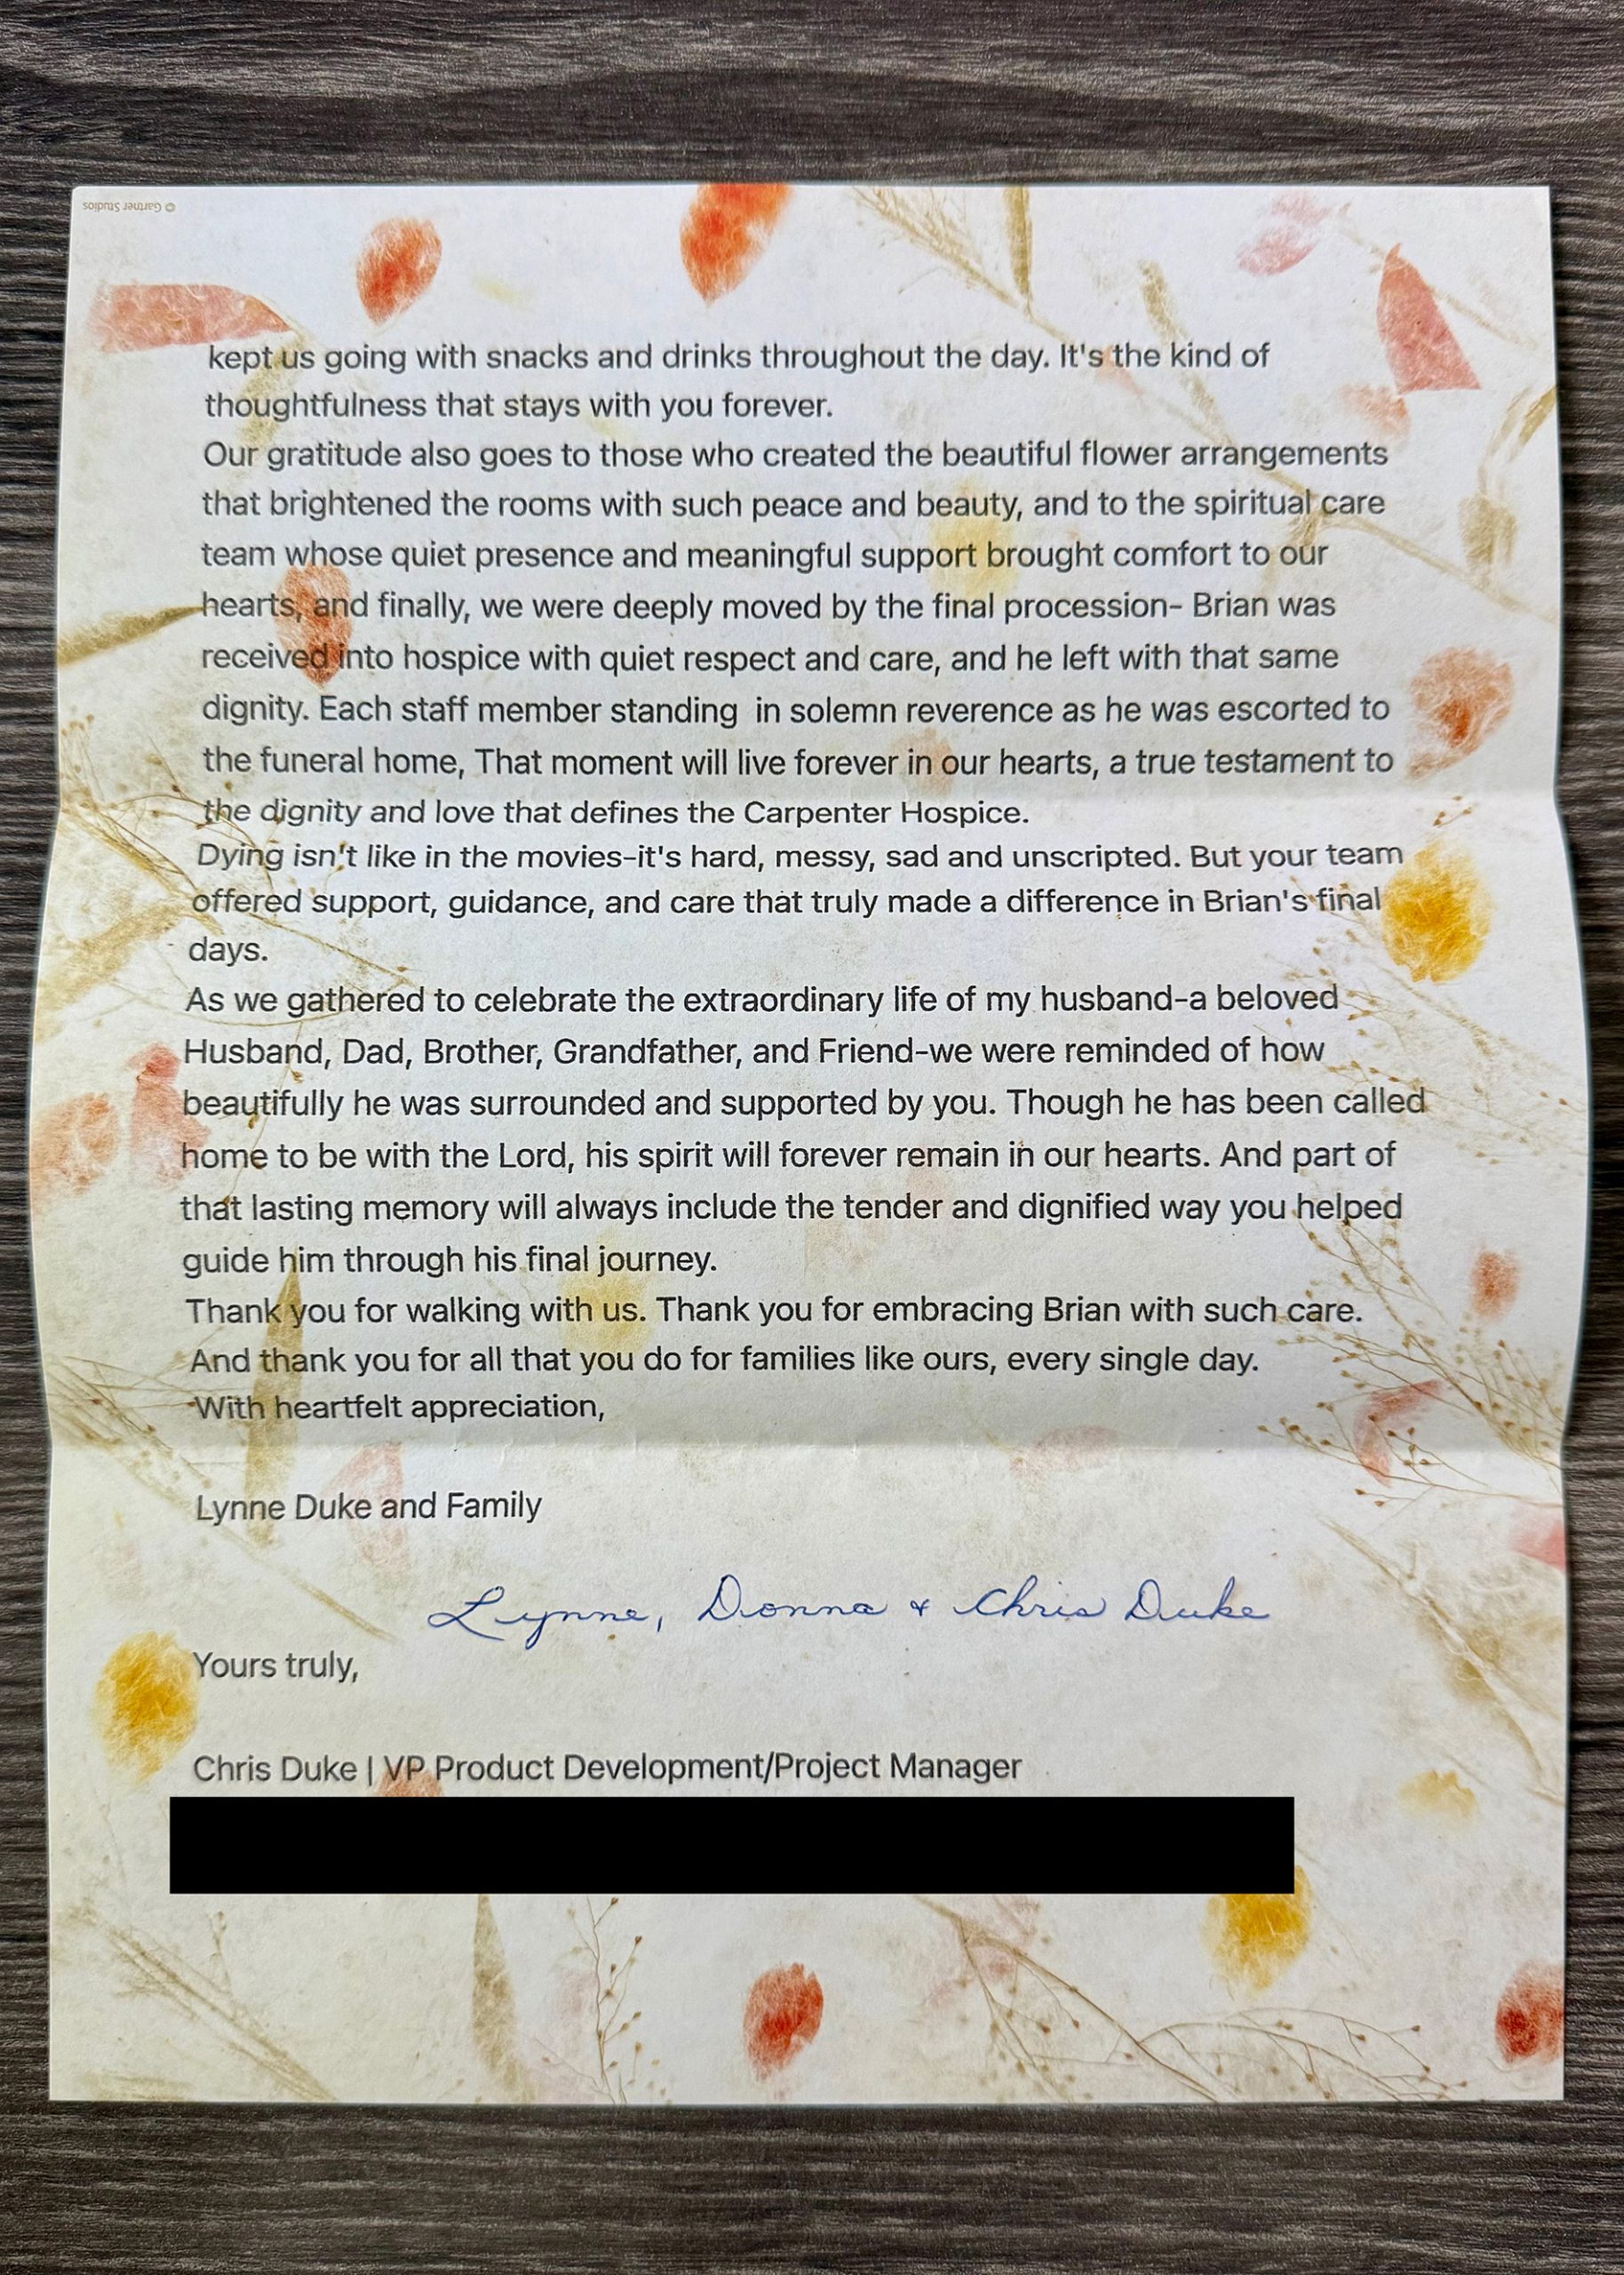 © Gartner Studios
kept us going with snacks and drinks throughout the day. It's the kind of
thoughtfulness that stays with you forever.
Our gratitude also goes to those who created the beautiful flower arrangements
that brightened the rooms with such peace and beauty, and to the spiritual care
team whose quiet presence and meaningful support brought comfort to our
hearts, and finally, we were deeply moved by the final procession- Brian was
received into hospice with quiet respect and care, and he left with that same
dignity. Each staff member standing  in solemn reverence as he was escorted to
the funeral home, That moment will live forever in our hearts, a true testament to
the dignity and love that defines the Carpenter Hospice.
Dying isn't like in the movies-it's hard, messy, sad and unscripted. But your team
offered support, guidance, and care that truly made a difference in Brian's final
days.
As we gathered to celebrate the extraordinary life of my husband-a beloved
Husband, Dad, Brother, Grandfather, and Friend-we were reminded of how
beautifully he was surrounded and supported by you. Though he has been called
home to be with the Lord, his spirit will forever remain in our hearts. And part of
that lasting memory will always include the tender and dignified way you helped
guide him through his final journey.
Thank you for walking with us. Thank you for embracing Brian with such care.
And thank you for all that you do for families like ours, every single day.
With heartfelt appreciation,
Lynne Duke and Family
Lynne, Donna & Chris Duke
Yours truly,
Chris Duke | VP Product Development/Project Manager